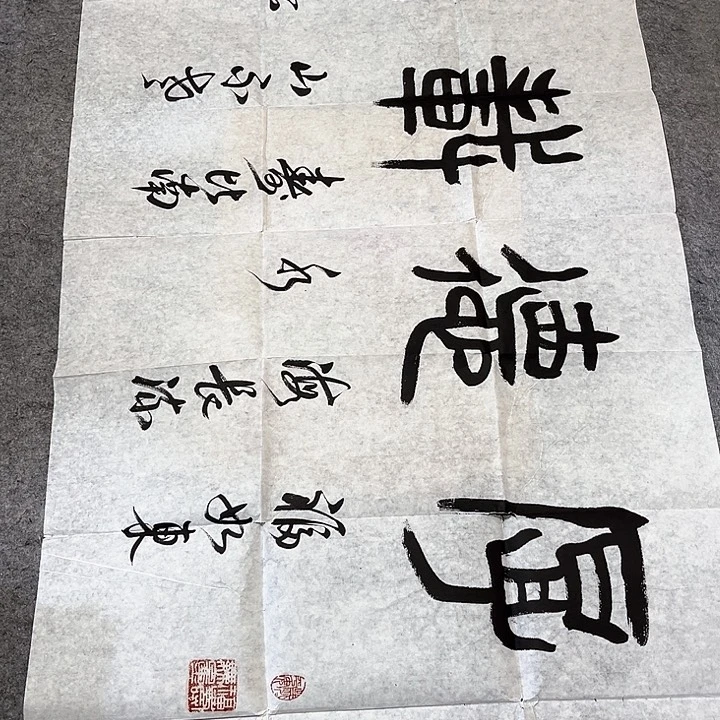 厚德載
福如東
海長流
水
壽比南
山不老